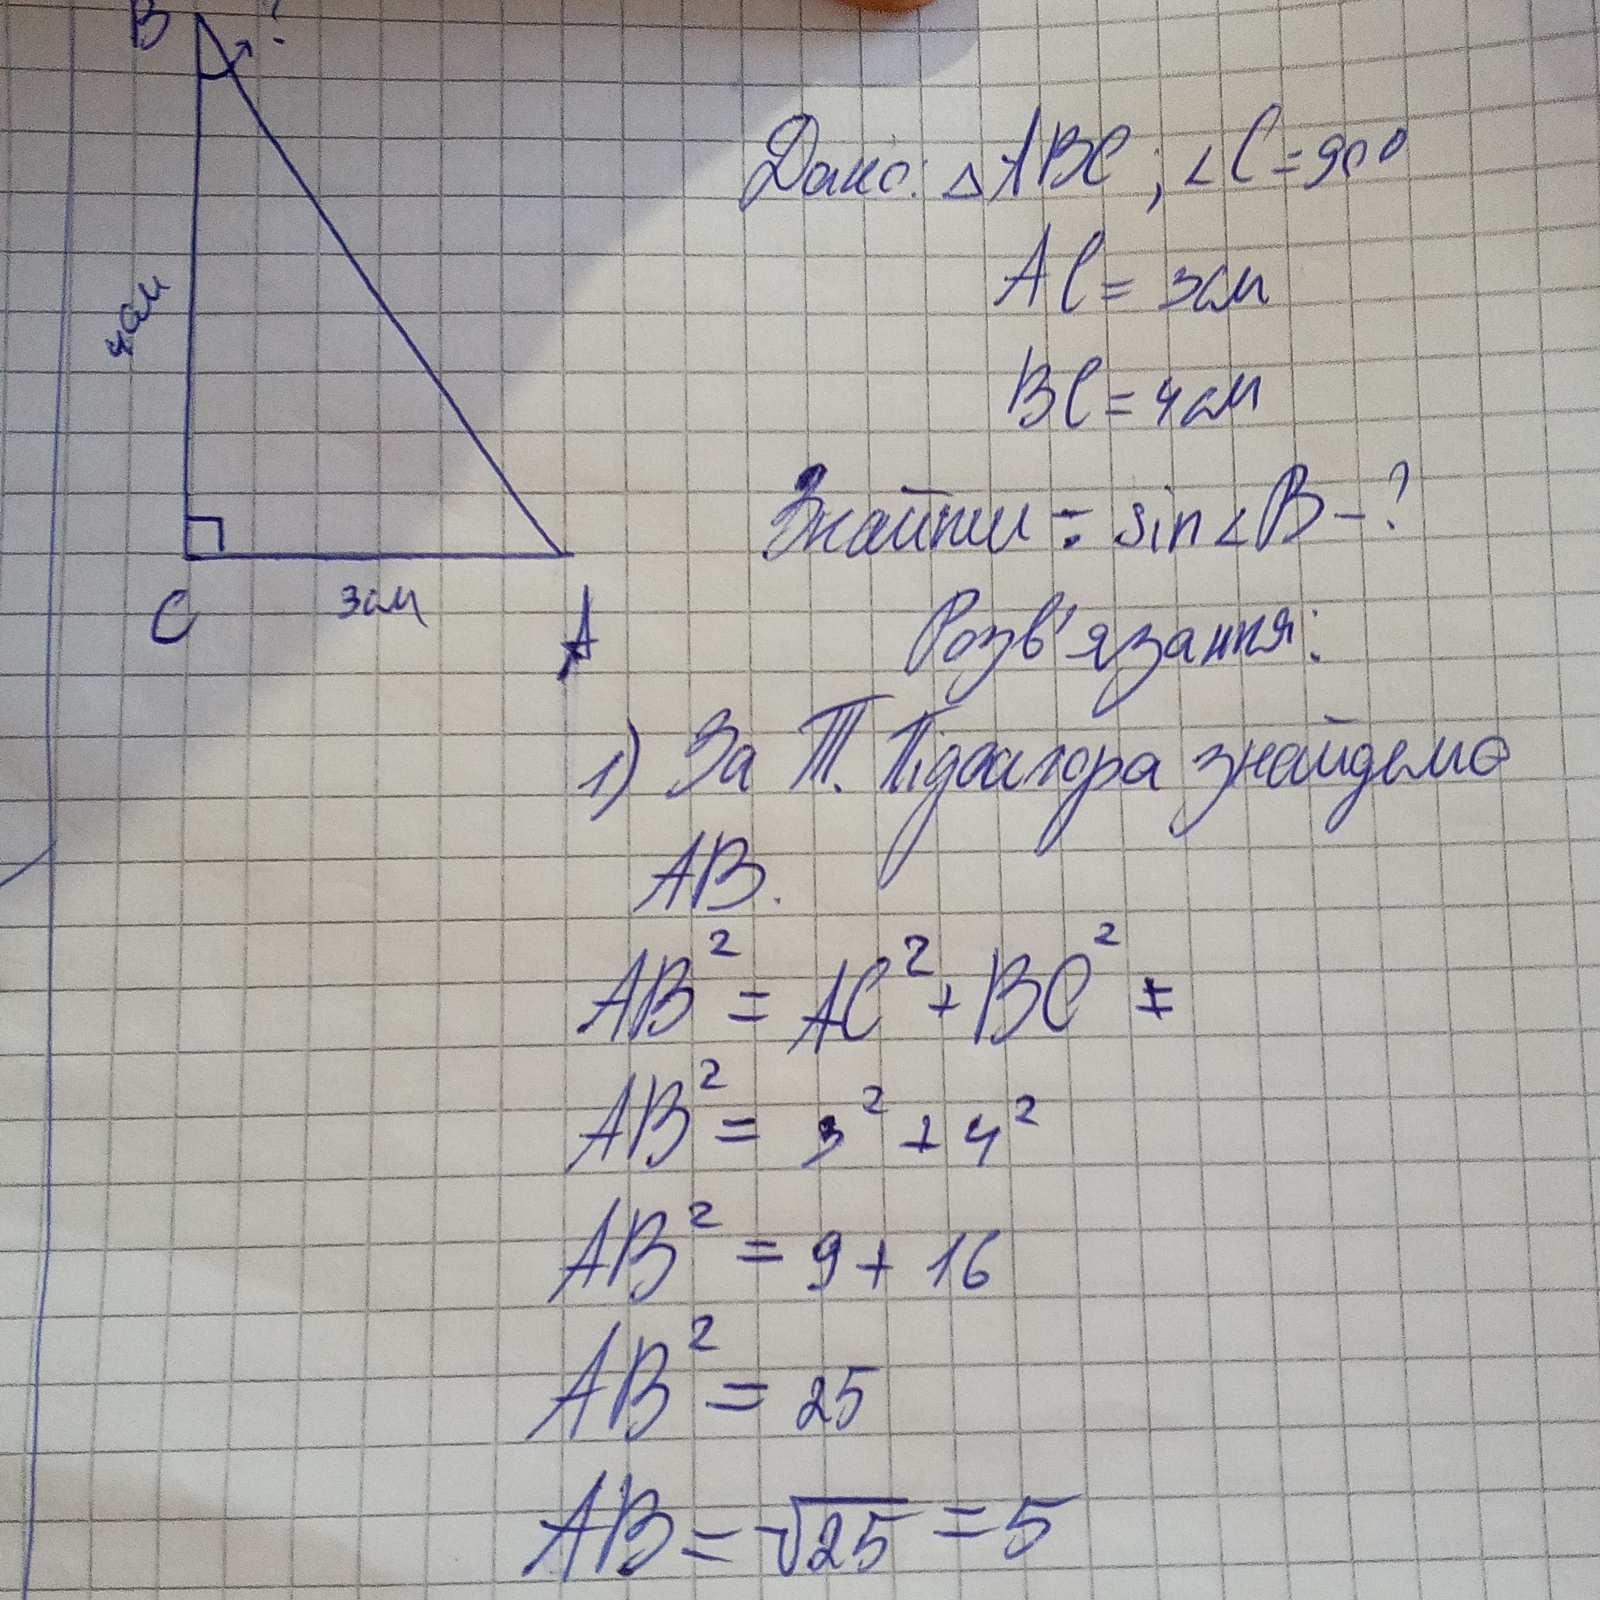 B ?
4см
C 3см A
Дано: △ABC; ∠C=90°
AC= 3см
BC=4см
Знайти: sin∠B-?
Розв'язання:
1) За Т. Піфагора знайдемо
AB.
AB² = AC² + BC² =
AB² = 3² + 4²
AB² = 9+ 16
AB² = 25
AB= √25 =5